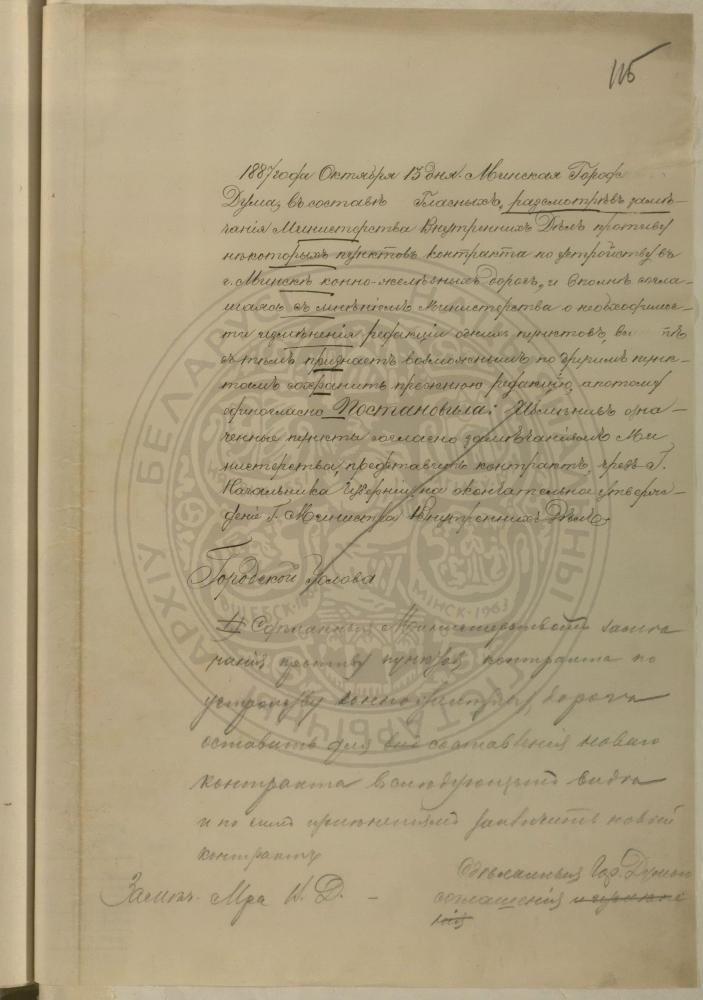 115
1887 года Октября 13 дня. Минская Городс
Дума, въ составѣ Гласныхъ, разсмотрѣвъ замѣ-
чанія Министерства Внутреннихъ Дѣлъ противу
нѣкоторыхъ пунктовъ контракта по устройству въ
г. Минскѣ конно-желѣзныхъ дорогъ, и вполнѣ согла-
шаясь съ мнѣніемъ Министерства о необходимос-
ти измѣненія редакціи однихъ пунктовъ,
съ тѣмъ признаетъ возможнымъ по другимъ пунк-
тамъ сохранить прежнюю редакцію, а потому
единогласно Постановила: Измѣнивъ озна-
ченные пункты согласно замѣчаніямъ Ми
нистерства, представить контрактъ, чрезъ Г.
Начальника Губерніи, на окончательное утверж-
деніе Г. Министра Внутреннихъ Дѣлъ.
Городской Голова
Сдѣланныя Министерствомъ замѣч
анія противу пунктов контракта по
устройству конно дорогъ
оставить для составленія новаго
контракта въ слѣдующемъ видѣ
и по симъ заключить новый
контрактъ
Сдѣланныя Гор. Думою
Замѣч. Мра В. Д. — соглашенія